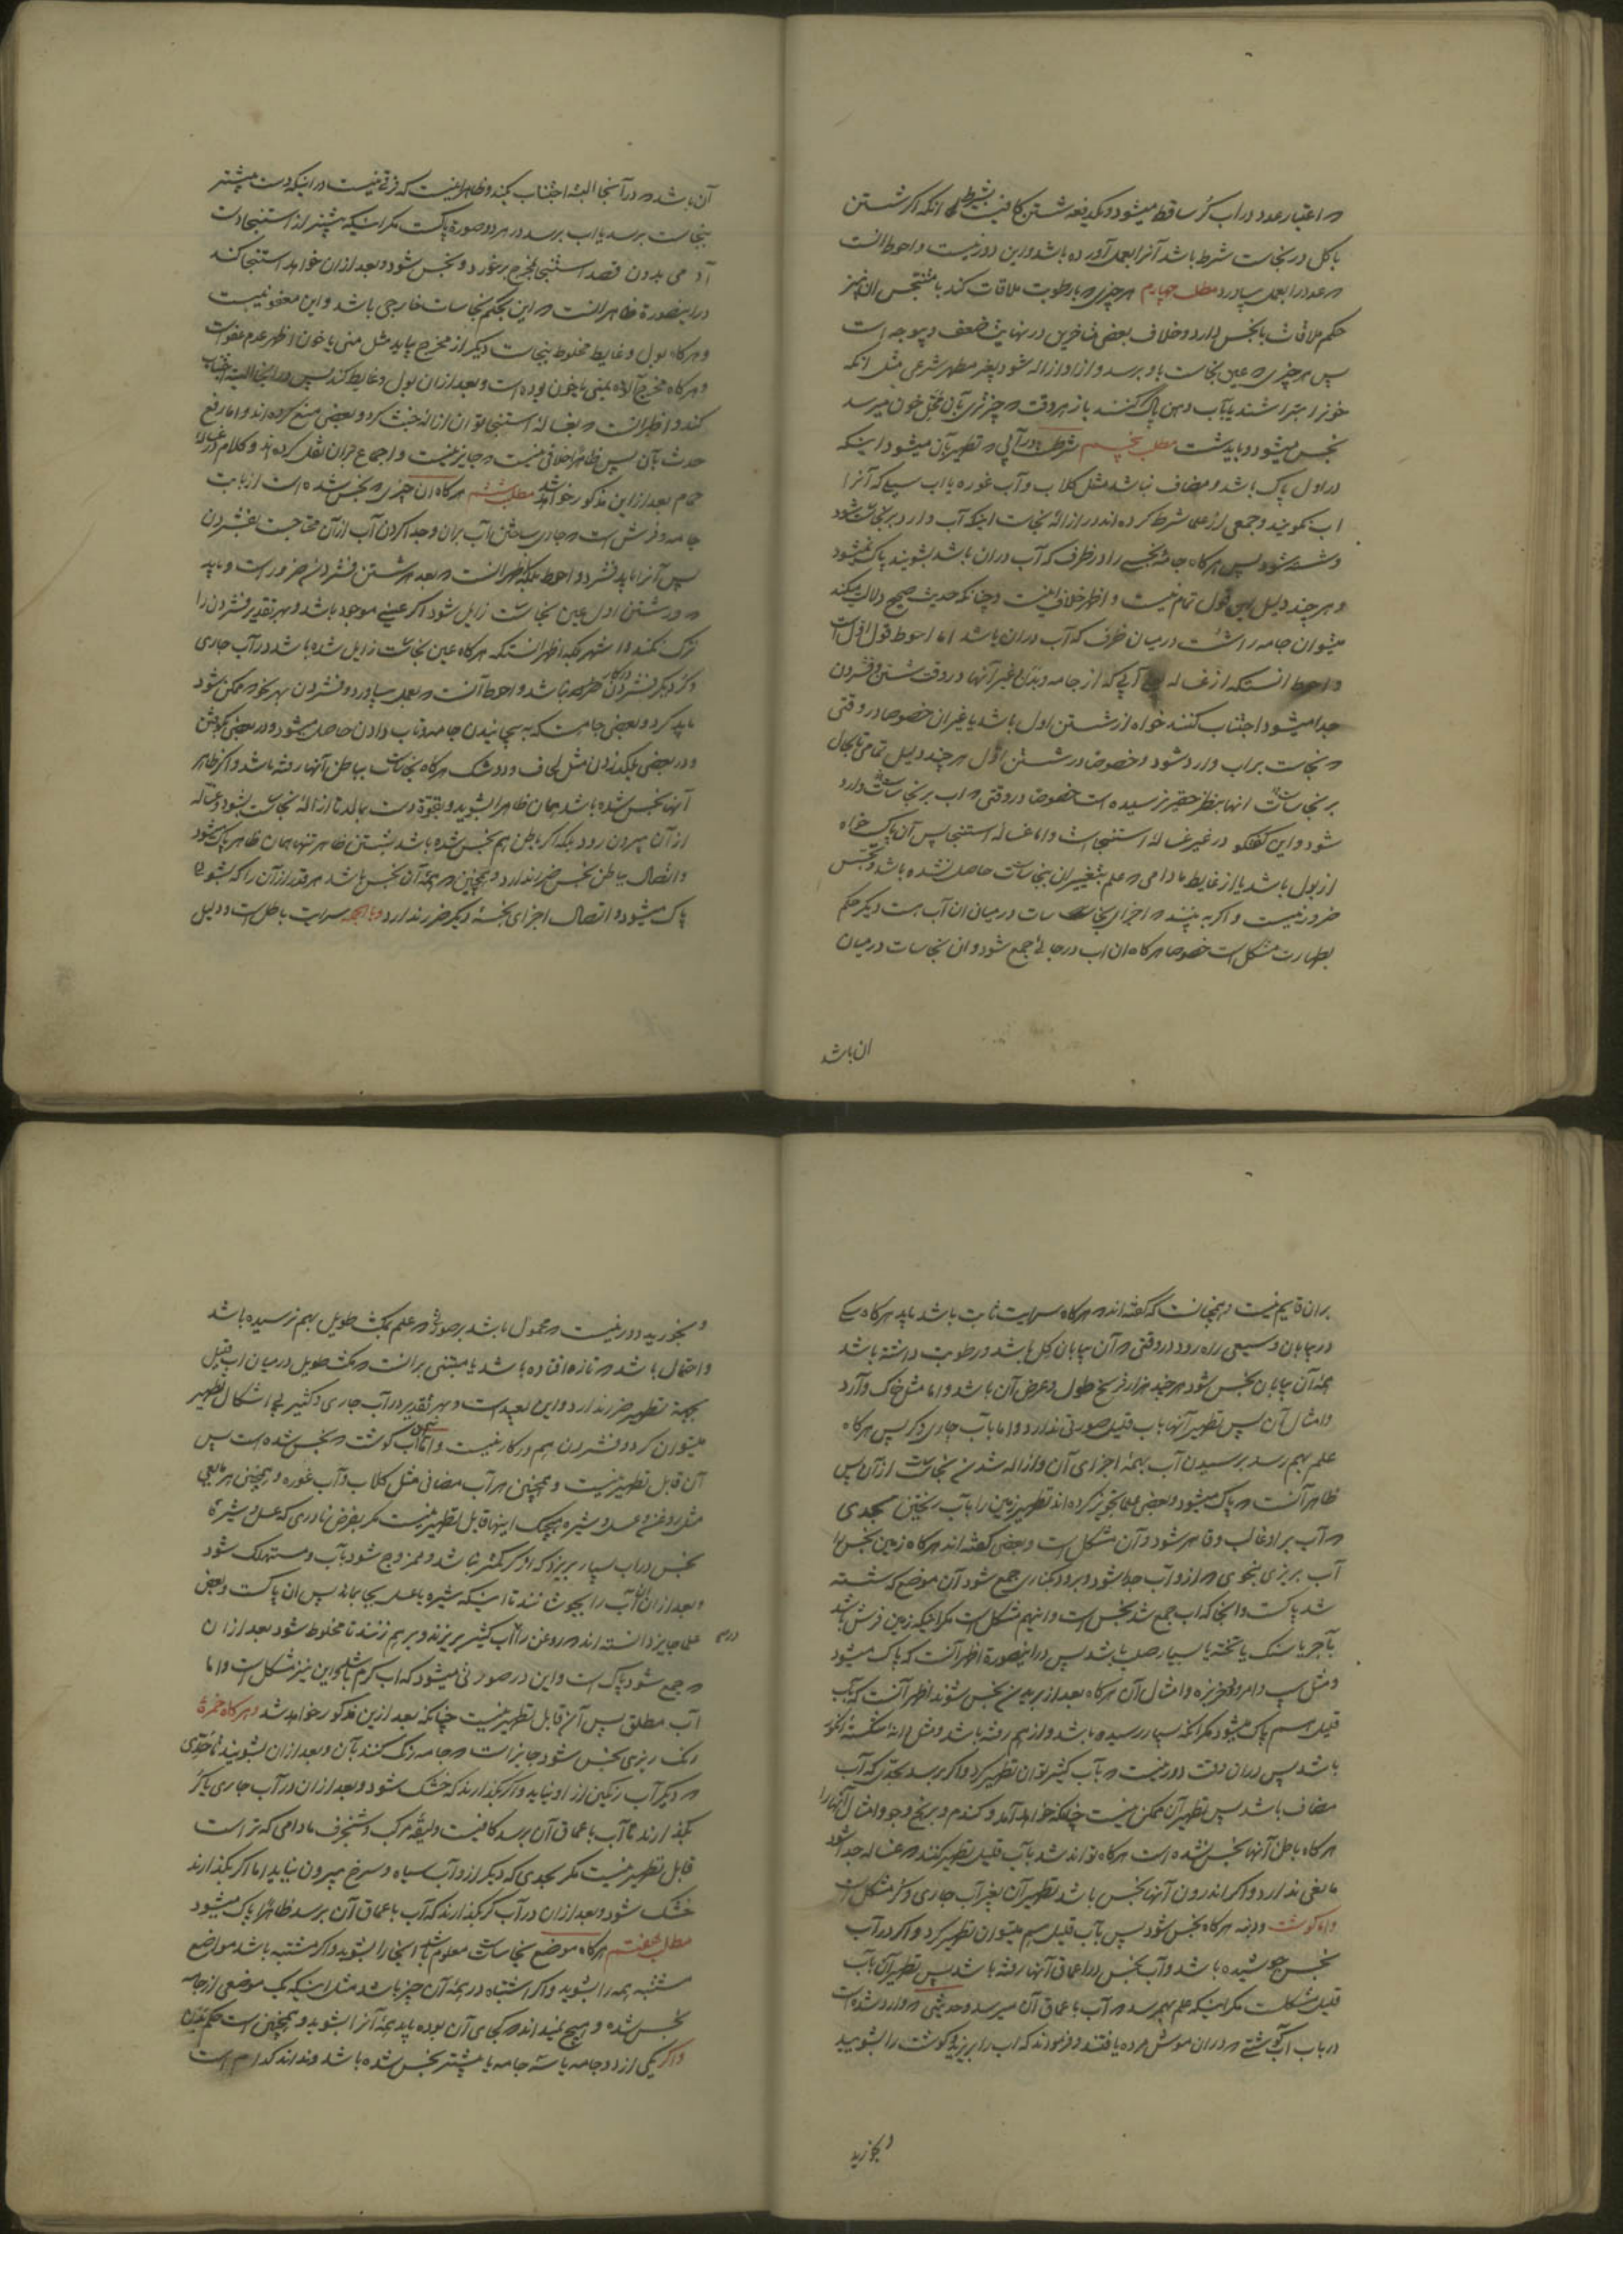 که اعتبار عدد در آب کر ساقط میشود و یکدفعه شستن کافیست بشرط انکه اکر شستن
با کل در نجاست شرط باشد آنرا بعمل آورده باشد و این دور نیست و احوط انست
که عدد را بعمل بیاورد مطلب چهارم هر چیزی که با رطوبت ملاقات کند با متنجس ان نیز
حکم ملاقات با نجس دارد و خلاف بعضی متاخرین در نهایت ضعف و بیوجه است
پس هر چیزی که عین نجاست باو برسد و از او ازاله شود بغیر مطهر شرعی مثل انکه
خونرا بتراشند یا بآب دهن پاک کنند باز هر وقت که چیز تری بآن محل خون میرسد
نجس میشود و باید شست مطلب پنجم شرطست در آبی که تطهیر بآن میشود اینکه
در اول پاک باشد و مضاف نباشد مثل کلاب و آب غوره یا اب سیب که آنرا
اب نکویند و جمعی از علما شرط کرده اند در ازالهٔ نجاست اینکه آب وارد بر نجاست شود
و شسته شود پس هرکاه جامهٔ نجسی را در ظرف که آب دران باشد بشویند پاک نمیشود
و هر چند دلیل این قول تمام نیست و اظهر خلاف اینست و چنانکه حدیث صحیح دلالت میکند
میتوان جامه را شست در میان ظرف که آب دران باشد اما احوط قول اول است
و احوط انستکه از غساله یعنی آبی که از جامه و بدن و غیر آنها در وقت شستن و فشردن
جدا میشود اجتناب کنند خواه از شستن اول باشد یا غیر ان خصوصا در وقتی
که نجاست بر اب وارد شود و خصوصا در شستن اول هر چند دلیل تمامی تا بحال
بر نجاست انها بنظر حقیر نرسیده است خصوصا در وقتی که اب بر نجاست وارد
شود و این کفتکو در غیر غسالهٔ استنجاست و اما غسالهٔ استنجا پس آن پاکست خواه
از بول باشد یا از غایط مادامی که علم بتغییر ان بنجاست حاصل نشده باشد و تجسس
ضرور نیست و اکر به بینند که اجزای نجاسات در میان ان آب هست دیکر حکم
بطهارت مشکل است خصوصا هرکاه ان اب در جائی جمع شود و ان نجاسات در میان
ان باشد
آن باشد که در آنجا البته اجتناب کنند و ظاهر اینست که فرقی نیست در اینکه دست پیشتر
بنجاست برسد یا اب برسد در هر دو صورة پاکست مکر اینکه پیشتر از استنجا دست
آدمی بدون قصد استنجا بمخرج بخورد و نجس شود و بعد ازان خواهد استنجا کند
در اینصورة ظاهر انست که این بحکم نجاسات خارجی باشد و این معفو نیست
و هرکاه بول و غایط مخلوط بنجاست دیکر از مخرج بیاید مثل منی یا خون اظهر عدم عفو است
و هرکاه مخرج آلوده بمنی یا خون بوده است و بعد ازان بول و غایط کند پس در اینجا البته اجتناب
کند و اظهر انست که بغسالهٔ استنجا توان ازالهٔ خبث کرد و بعضی منع کرده اند و اما رفع
حدث بآن پس ظاهرا خلافی نیست که جایز نیست و اجماع بران نقل کرده اند و کلام در غسالهٔ
حمام بعد ازاین مذکور خواهد شد مطلب ششم هرکاه ان چیزی که نجس شده است از بابت
جامه و فرش است که جاری ساختن آب بران و جدا کردن آب ازآن محتاجست بفشردن
پس آنرا باید فشرد و احوط بلکه اظهر انست که بعد هر شستن فشردنی ضرور است و باید
که در شستن اول عین نجاست زایل شود اکر عینی موجود باشد و بهر تقدیر فشردن را
ترک نکنند و اشهر بلکه اظهر انستکه هرکاه عین نجاست زایل شده باشد در آب جاری
و کر دیکر فشردن در کار نباشد و احوط آنست که بعمل بیاورد و فشردن بهر نحو که ممکن شود
باید کرد و بعضی جامه است که به پیچانیدن جامه و تاب دادن حاصل میشود و در بعضی بکوفتن
و در بعضی بلکد زدن مثل لحاف و دوشک هرکاه نجاست بباطن آنها رفته باشد و اکر ظاهر
آنها نجس شده باشد همان ظاهر را بشوید و بقوّة دست بمالد تا ازالهٔ نجاست بشود و غساله
از آن بیرون رود بلکه اکر باطن هم نجس شده باشد بشستن ظاهر تنها همان ظاهر پاک میشود
و اتصال بباطن نجس ضرر ندارد و همچنین که همهٔ آن نجس باشد هر قدر ازآن را که بشوید
پاک میشود و اتصال اجزای نجسهٔ دیکر ضرر ندارد و بالجمله سرایت باطل است و دلیل
بران قایم نیست و همچنانست که کفته اند که هرکاه سرایت ثابت باشد باید هرکاه سکی
در بیابان وسیعی راه رود در وقتی که آن بیابان کل باشد و رطوبت داشته باشد
همهٔ آن بیابان نجس شود هر چند هزار فرسخ طول و عرض آن باشد و اما مثل خاک و آرد
و امثال آن پس تطهیر آنها باب قلیل صورتی ندارد و اما بآب جاری و کر پس هرکاه
علم بهم رسد برسیدن آب بهمهٔ اجزای آن و ازاله شدن نجاست ازآن پس
ظاهر آنست که پاک میشود و بعضی علما تجویز کرده اند تطهیر زمین را بآب ریختن بحدی
که آب بر او غالب و قاهر شود و آن مشکل است و بعضی کفته اند هرکاه زمین نجس را
آب بریزی بنحوی که ازو آب جدا شود و برود بکناری جمع شود آن موضع که شسته
شد پاکست و انجا که اب جمع شد نجس است و اینهم مشکل است مکر اینکه زمین فرش باشد
بآجر یا سنک یا تخته یا بسیار صلب باشد پس در اینصورة اظهر آنست که پاک میشود
و مثل سیب و امرود و خربزه و امثال آن هرکاه بعد از بریدن نجس شوند اظهر آنست که بآب
قلیل هم پاک میشود مکر انکه بسیار رسیده باشد و از هم رفته باشد و مثل انهٔ شکستهٔ انکور
باشد پس دران وقت دور نیست که بآب کثیر توان تطهیر کرد و اکر برسد بحدی که آب
مضاف باشد پس تطهیر آن ممکن نیست چنانکه خواهد آمد و کندم و برنج و جو و امثال آنها را
هرکاه باطن آنها نجس نشده است هرکاه تواند شد بآب قلیل تطهیر کنند که غساله جدا شود
مانعی ندارد و اکر اندرون آنها نجس باشد تطهیر آن بغیر آب جاری و کر مشکل است
و اما کوشت و دنبه هرکاه نجس شود پس بآب قلیل هم میتوان تطهیر کرد و اکر در آب
نجس جوشیده باشد و آب نجس در اعماق آنها رفته باشد پس تطهیر آن بآب
قلیل مشکلست مکر اینکه علم بهم رسد که آب باعماق آن میرسد و حدیثی که وارد شده است
در باب اب کوشتی که دران موش مرده یافتند و فرمودند که اب را بریزید و کوشت را بشویید
و بخورید
و بخورید دور نیست که محمول باشد بر صورتی که علم بمکث طویل بهم نرسیده باشد
و احتمال باشد که تازه افتاده باشد یا مبتنی بر انست که مکث طویل در میان اب قلیل
بجهة تطهیر ضرر ندارد و این بعید است و بهر تقدیر در آب جاری و کثیر بی اشکال تطهیر
میتوان کرد و فشردن هم در کار نیست و اما آب کوشت که نجس شده است پس
آن قابل تطهیر نیست و همچنین هر آب مضافی مثل کلاب و آب غوره و همچنین هر مایعی
مثل روغن و عسل و شیره هیچیک اینها قابل تطهیر نیست مکر بفرض نادری که عسل و شیرهٔ
نجس در اب بسیار بریزد که از کر کمتر نباشد و ممزوج شود بآب و مستهلک شود
و بعد ازان ان آب را بجوشانند تا اینکه شیره یا عسل بجا بماند پس ان پاکست و بعضی
علما جایز دانسته اند که روغن را در آب کثیر بریزند و بر هم زنند تا مخلوط شود بعد ازان
که جمع شود پاک است و این در صورتی میشود که اب کرم باشد و این نیز مشکل است و اما
آب مطلق پس آن قابل تطهیر نیست چنانکه بعد ازین مذکور خواهد شد و هرکاه خمرهٔ
رنک ریزی نجس شود جایز است که جامه رنک کنند بآن و بعد ازان بشویند تا حدی
که دیکر آب رنکین از او نیاید و اکر بکذارند که خشک شود و بعد ازان در آب جاری یا کر
بکذارند تا آب باعماق آن برسد کافیست و لیقهٔ مرکب و شنجرف مادامی که تر است
قابل تطهیر نیست مکر بحدی که دیکر ازو آب سیاه و سرخ بیرون نیاید اما اکر بکذارند
خشک شود و بعد ازان در آب کر بکذارند که آب باعماق آن برسد ظاهرا پاک میشود
مطلب هفتم هرکاه موضع نجاست معلوم باشد انجا را بشوید و اکر مشتبه باشد مواضع
مشتبه همه را بشوید و اکر اشتباه در همهٔ آن چیز باشد مثل اینکه یک موضعی از جامه
نجس شده و هیچ نمیداند که کجای آن بوده باید همهٔ آنرا بشوید و همچنین است حکم بدن
و اکر یکی از دو جامه یا سه جامه یا بیشتر نجس شده باشد و نداند کدام است